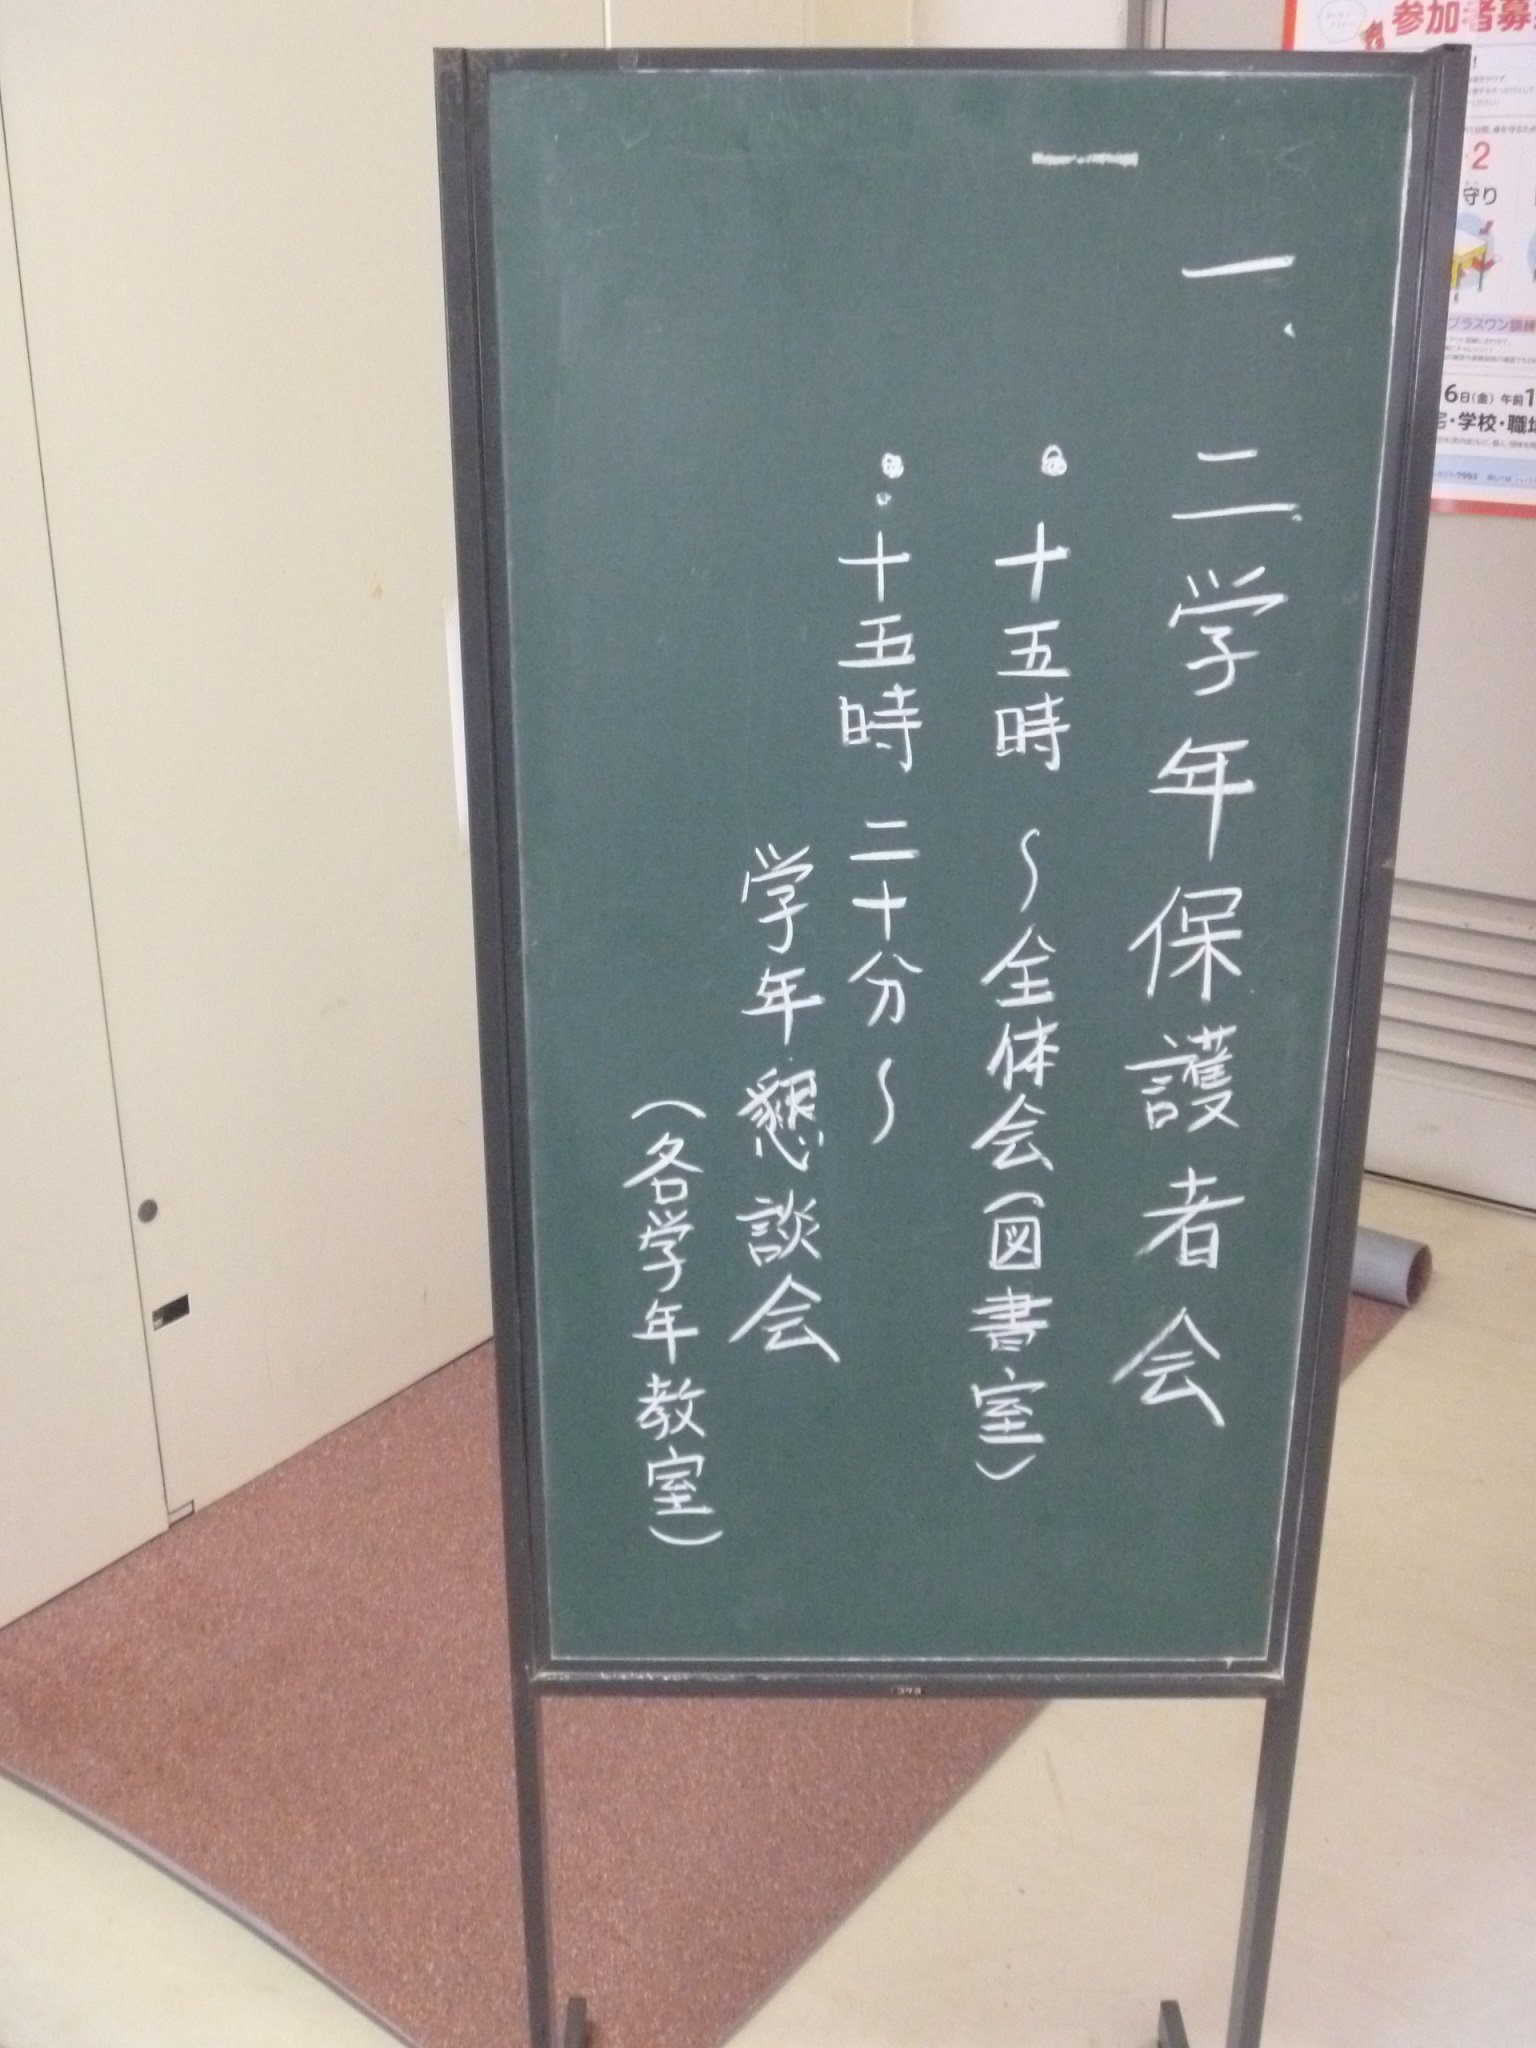 一、二学年保護者会
・十五時〜全体会(図書室)
・十五時二十分〜
学年懇談会
(各学年教室)
参加者募
2
守り
プラスワン訓練
6日(金)午前1
・学校・職場